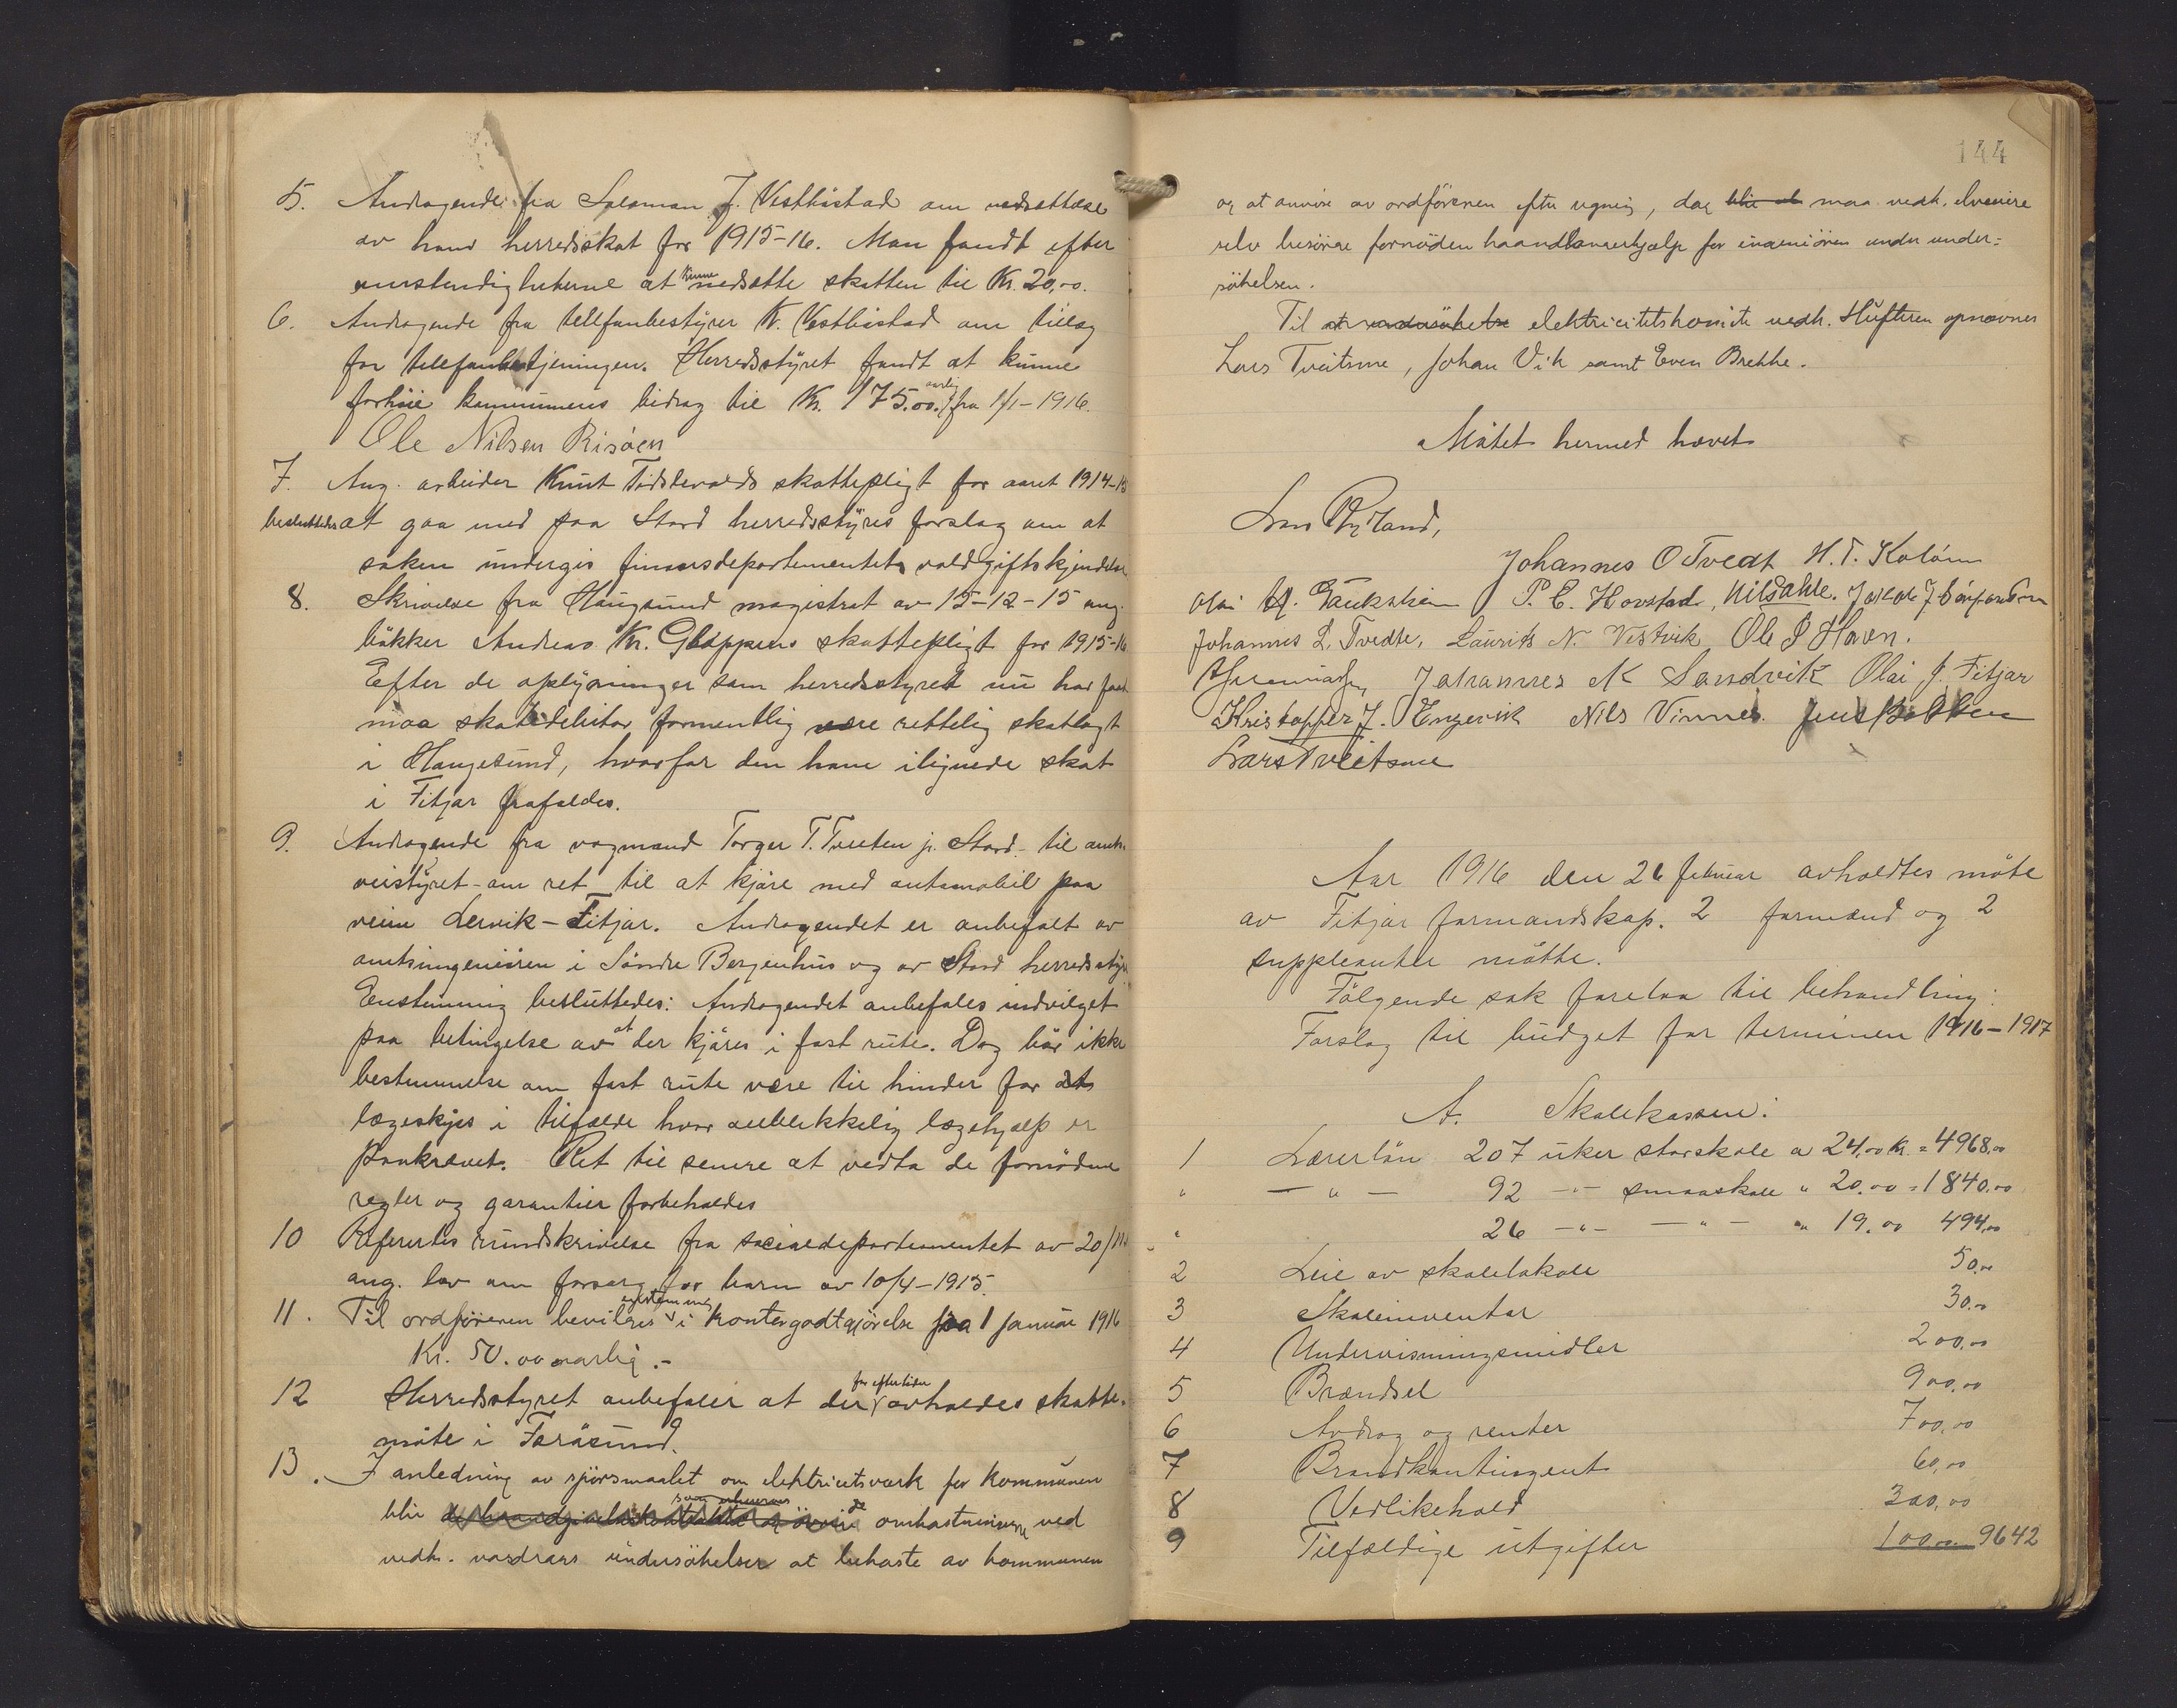 5. Andragende fra Salamon J. Vestbøstad om nedsættelse
av hans herredsskat for 1915-16. Man fandt efter
omstendigheterne at kunne nedsætte skatten til Kr. 20,00.
6. Andragende fra telefonbestyrer K. Vestbøstad om tillæg
for telefonbetjeningen. Herredsstyret fandt at kunne
forhöie kommunens bidrag til Kr. 175.00. aarlig fra 1/1-1916.
Ole Nilsen Risöen
7. Ang. arbeider Knut Tidslevolds skattepligt for aaret 1914-15
besluttedes at gaa med paa Stord herredsstyres forslag om at
saken undergis finansdepartementets voldgiftskjendelse
8. Skrivelse fra Haugsund magistrat av 15-12-15 ang.
bökker Andreas Kr. Gloppens skattepligt for 1915-16
Efter de oplysninger som herredsstyret nu har faat
maa skatedebitor formentlig være rettelig skatlagt
i Haugesund, hvorfor den ham ilignede skat
i Fitjar frafaldes.
9. Andragende fra vognmand Torger T. Tveiten jr. Stord til amts
veistyret om ret til at kjöre med automobil paa
veien Lervik-Fitjar. Andragendet er anbefalt av
amtsingeniören i Söndre Bergenhus og av Stord herredsstyre
Enstemmig besluttedes: Andragendet anbefales indvilget
paa betingelse av at der kjöres i fast rute. Dog bör ikke
bestemmelse om fast rute være til hinder for
lægeskyss i tilfælde hvor øieblikkelig lægehjælp er
paakrævet. Ret til senere at vedta de fornødne
regler og garantier forbeholdes
10 Refereredes rundskrivelse fra socialdepartementet av 20/11
ang. lov om forsorg for barn av 10/4-1915.
11. Til ordföreren bevilges enstemmig i kontorgodtgjörelse fra 1 januar 1916
Kr. 50.00 aarlig.-
12 Herredsstyret anbefaler at der for eftertiden avholdes skatte-
möte i Faröesund.
13. I anledning av spörsmaalet om elektricitsværk for kommunen
blir de omkostningerne ved
vedk. vasdrags undersökelser at bekoste av kommunen
144
og at anvise av ordföreren efter regning, dog maa vedk. elveeiere
selv besörge fornöden haandlangerhjælp for ingeniören under under=
sökelsen.
Til elektricitetskomite vedk. Hufteren opnævnes
Lars Tveitsme, Johan Vik samt Even Brekke.
Mötet hermed hævet
Lars Ryland,
Johannes O Tvedt H. T. Koløen
Olai Gaukstein P. E. Hovstad, Nils Ahle.
Johannes L. Tvedte, Laurits N. Vestvik Ole J Haven.
Johannes K Sandvik Olai J. Fitjar
Kristoffer J. Engevik Nils Vinnes
Lars Tveitsme
Aar 1916 den 26 februar avholdtes möte
av Fitjar formandskap. 2 formænd og 2
suppleanter mötte.
Fölgende sak forelaa til behandling:
Forslag til budget for terminen 1916-1917
A. Skolekassen:
1 Lærerlön 207 uker storskole a 24,00 kr. = 4968,00
" — " — 92 -"- smaaskole " 20.00 = 1840.00
" 26 -"- — " — " 19.00 494,00
2 Leie av skolelokale 50,00
3 Skoleinventar 30.00
4 Undervisningsmidler 200,00
5 Brændsel 900,00
6 Avdrag og renter 700,00
7 Brandkontingent 60,00
8 Vedlikehold 300,00
9 Tilfældige utgifter 100,00 9642